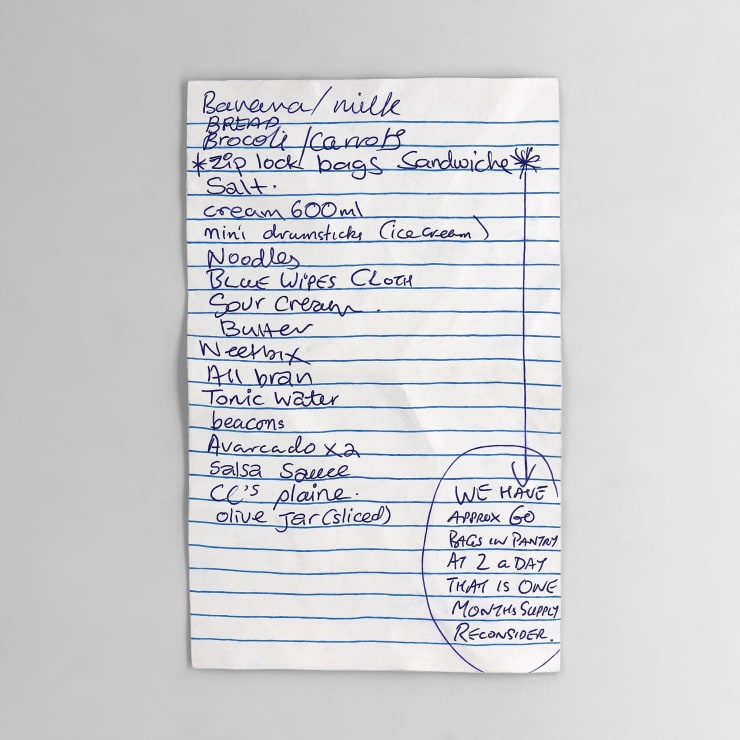 Banana/milk
BREAD
Brocoli/Carrots
*zip lock bags Sandwiche*
Salt.
cream 600ml
mini drumsticks (icecream)
Noodles
BLUE WIPES CLOTH
Sour Cream.
Butter
Weetbix
All bran
Tonic Water
beacons
Avarcado x2
Salsa Sauce
CC's plaine.
olive Jar(sliced)
WE HAVE
APPROX 60
BAGS IN PANTRY
AT 2 a DAY
THAT IS ONE
MONTHS SUPPLY
RECONSIDER.